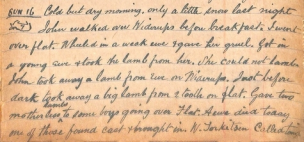 SUN 16 Cold but dry morning, only a little snow last night
John walked over before breakfast. I went
over flat. in a week ewe & gave her gruel. Got in
a young ewe & took the lamb from her. She could not
John took away a lamb from ewe on Just before
dark took away a big lamb from 2 tooth on flat. Gave two
lambs
to some boys going over Flat. dead today
one of those found cast & brought in. N.